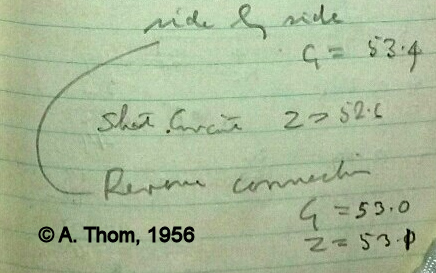 side by side
G = 53.4
Short. Circuit Z = 52.6
Reverse connection
G = 53.0
© A. Thom, 1956
Z = 53.1